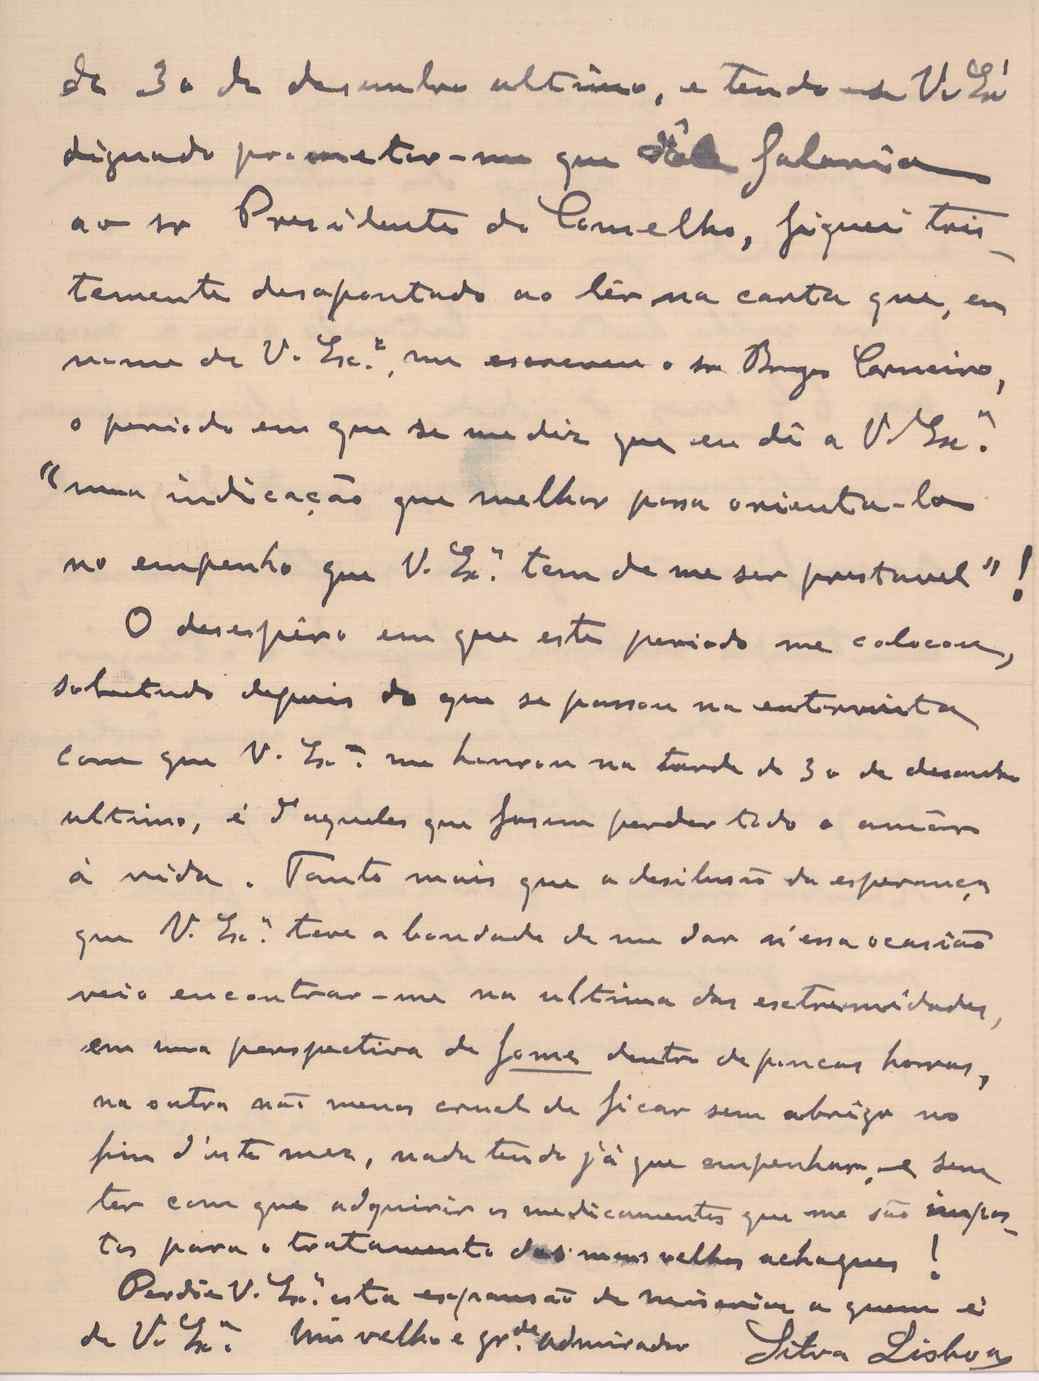 de 30 de desembro ultimo, e tendo-se V. Exª
dignado prometer-me que falaria
ao sr Presidente do Conselho, fiquei tris-
temente desapontado ao lêr na carta que, em
nome de V. Exª., me escreveu o sr Braga Carneiro,
o periodo em que se me diz que eu dê a V. Exª.
"uma indicação que melhor possa orienta-lo
no empenho que V. Exª. tem de me ser prestavel"!
O desespêro em que este periodo me colocou,
sobretudo depois do que se passou na entrevista
com que V. Exª. me honrou na tarde de 30 de desembro
ultimo, é d'aqueles que fasem perder todo o amôr
à vida. Tanto mais que a desilusão da esperança
que V. Exª. teve a bondade de me dar n'essa ocasião
veio encontrar-me na ultima das extremidades,
em uma perspectiva de fome dentro de poucas horas,
na outra não menos cruel de ficar sem abrigo no
fim d'este mez, nada tendo já que empenhar, e sem
ter com que adquirir os medicamentos que me são impos-
tos para o tratamento dos meus velhos achaques!
Perdôe V. Exª. esta expansão de miseria a quem é
de V. Exª. Mui velho e gr.de admirador Silva Lisboa